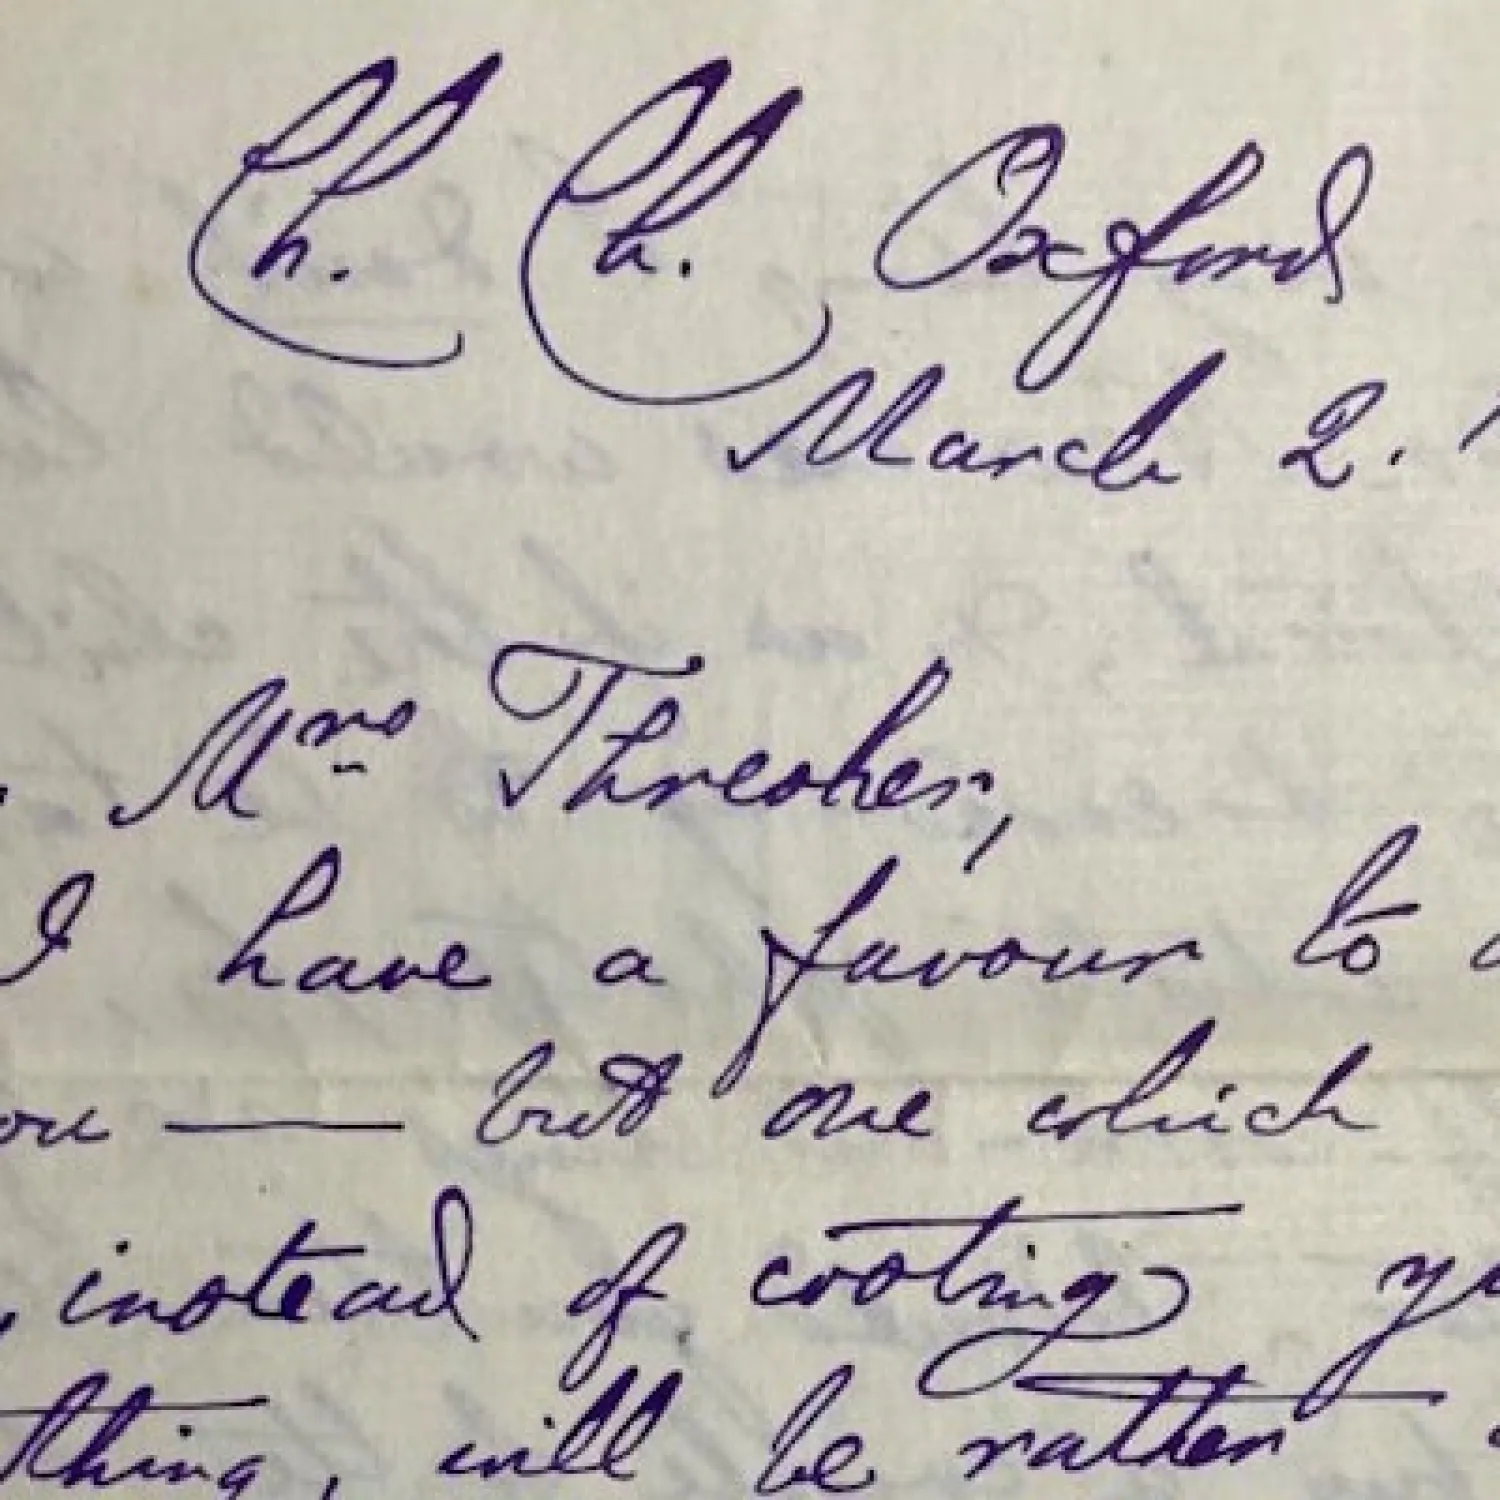 Ch. Ch. Oxford
March 2.
Mrs Thresher,
I have a favour to
ou — but one which
instead of costing
thing, will be rather